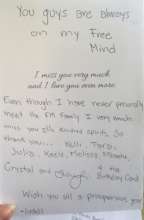 You guys are always
on my Free
Mind
I miss you very much
and I love you even more
Even though I have never personally
meet the FM family I very much
miss you all kindred spirits. So
thank you... Kelli, Tara,
Julia, Kayla, Melissa,
Crystal and
Birthday Card
Wish you all a prosperous year